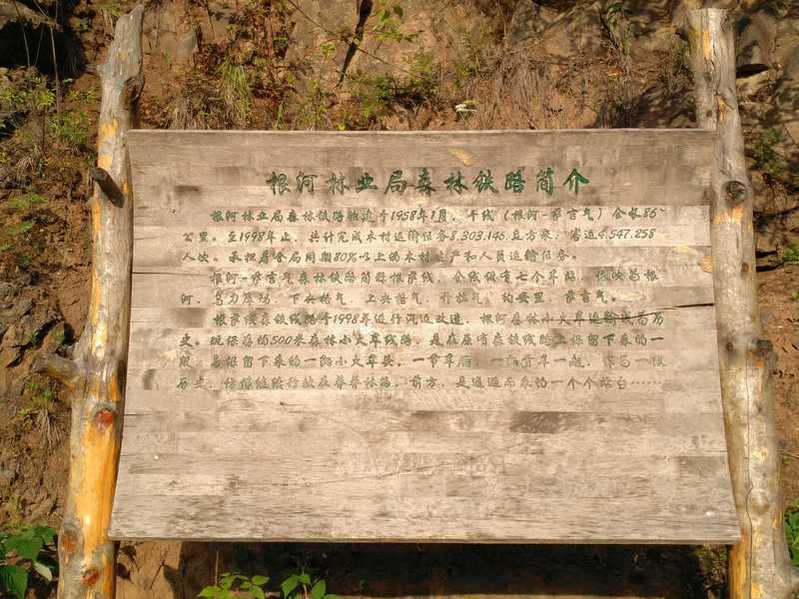 根河林业局森林铁路简介
根河林业局森林铁路始建于1958年1月，干线（根河-萨吉气）全长86
公里。至1998年止，共计完成木材运输任务8,303,146立方米，客运4,547,258
人次。承担着全局同期80%以上的木材生产和人员运输任务。
根河-萨吉气森林铁路简称根萨线，全线设有七个车站，依次为根
河、乌力库玛、下央格气、上央格气、开拉气、约安里、萨吉气。
根萨线森铁线路于1998年进行汽运改造，根河森林小火车运输成为历
史。现保存的500米森林小火车线路，是在原有森铁线路上保留下来的一
段，与保留下来的一辆小火车头、一节车厢、一辆台车一起，作为一段
历史，仿佛继续行驶在莽莽林海，前方，是道道而来的一个个站台……